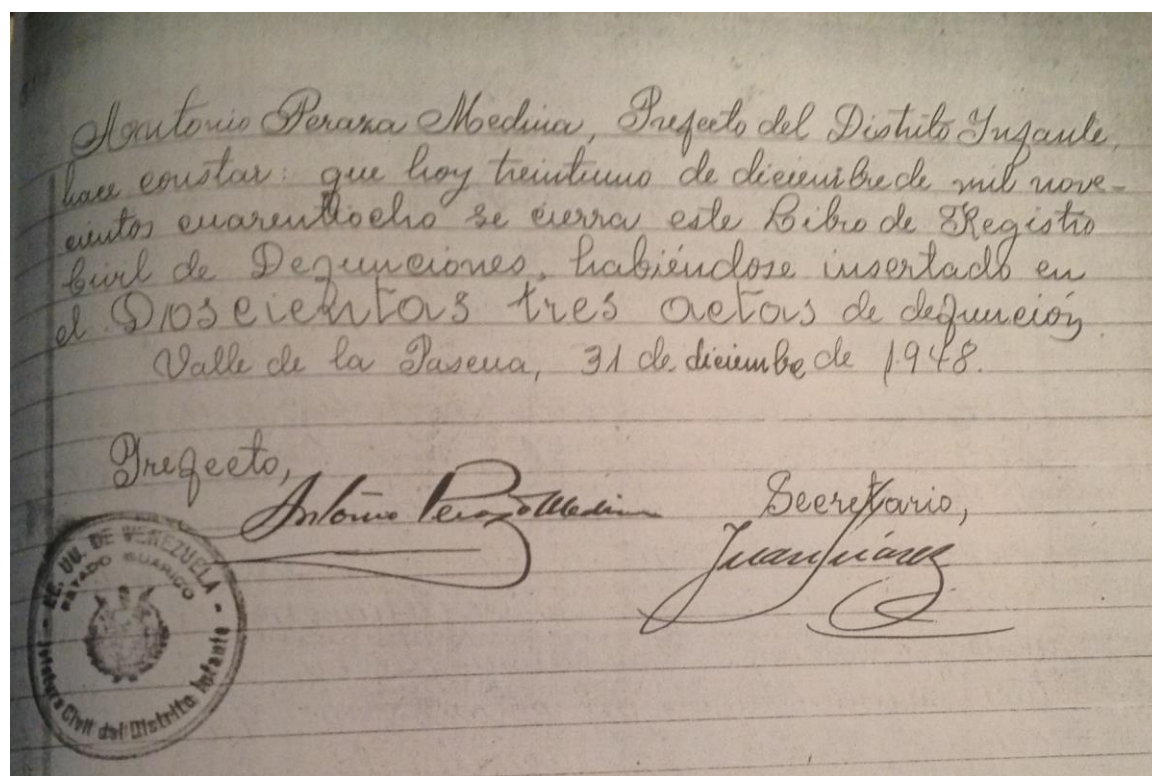 Antonio Peraza Medina, Prefecto del Distrito Infante,
hace constar: que hoy treintiuno de diciembre de mil nove-
cientos cuarentiocho se cierra este Libro de Registro
Civil de Defunciones, habiéndose insertado en
el Doscientas tres actas de defunción.
Valle de la Pascua, 31 de diciembre de 1948.
Prefecto,
Antonio Peraza Medina
Secretario,
Juan Juárez
EE. UU. DE VENEZUELA
ESTADO GUARICO
Jefatura Civil del Distrito Infante